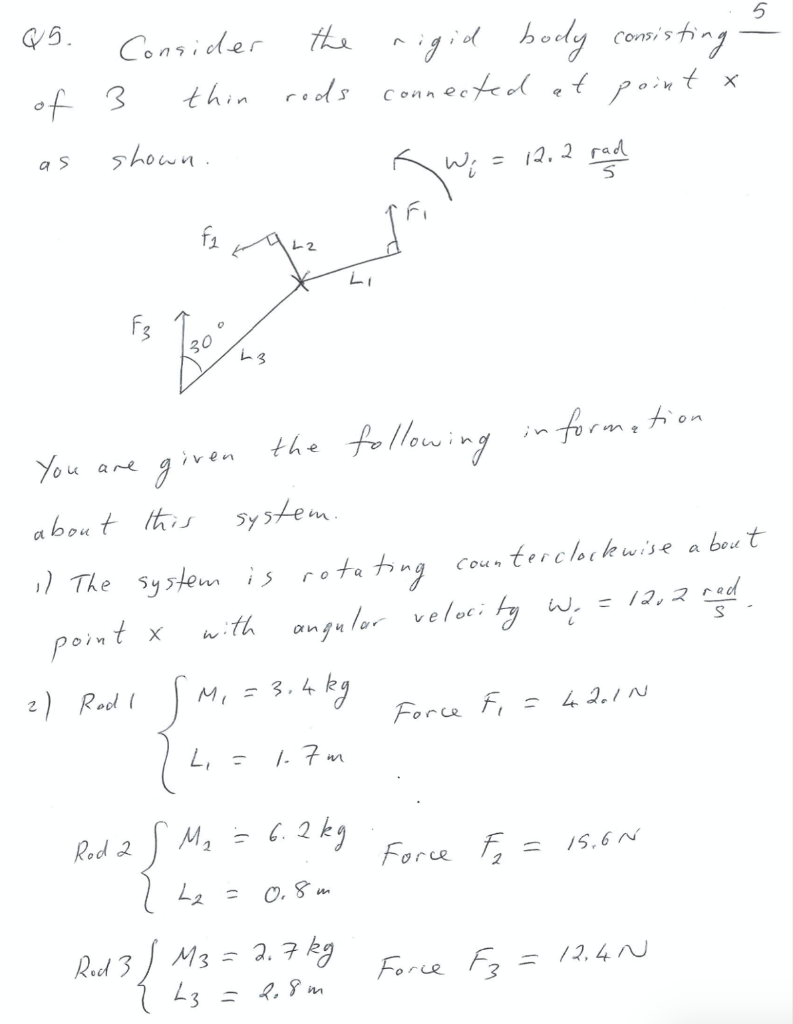 5
Q5. Consider the rigid body consisting
of 3 thin rods connected at point x
as shown.
Wi = 12.2 rad/s
F1
F2
L2
L1
F3
30°
L3
You are given the following information
about this system.
1) The system is rotating counterclockwise about
point x with angular velocity Wi = 12.2 rad/s.
2) Rod 1 { M1 = 3.4 kg Force F1 = 42.1 N
L1 = 1.7 m
Rod 2 { M2 = 6.2 kg Force F2 = 15.6 N
L2 = 0.8 m
Rod 3 { M3 = 2.7 kg Force F3 = 12.4 N
L3 = 2.8 m